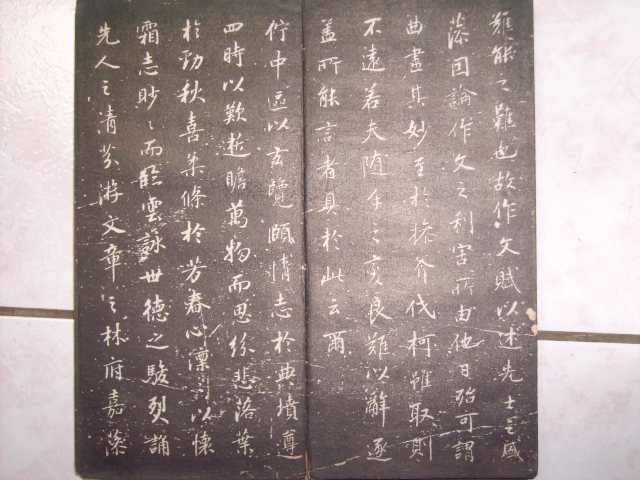 難能之難也故作文賦以述先士之盛
藻因論作文之利害所由他日殆可謂
曲盡其妙至於操斧伐柯雖取則
不遠若夫隨手之變良難以辭逐
蓋所能言者具於此云爾
佇中區以玄覽頤情志於典墳遵
四時以歎逝瞻萬物而思紛悲落葉
於勁秋喜柔條於芳春心懍懍以懷
霜志眇眇而臨雲詠世德之駿烈誦
先人之清芬游文章之林府嘉藻